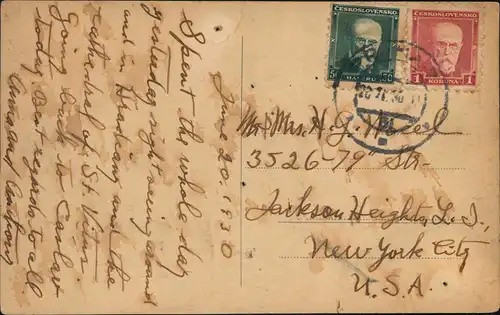 June 20. 1930
Spent the whole day
yesterday sight seeing around
and in Hradčany and the
cathedral of St. Vitus
Going back to Caslav
today. Best regards to all
Anna and Anthony
ČESKOSLOVENSKO
50
ČESKOSLOVENSKO
1 KORUNA 1
Mr & Mrs. H. G.
3526-79" Str.
Jackson Heights, L. I.,
New York City
U. S. A.